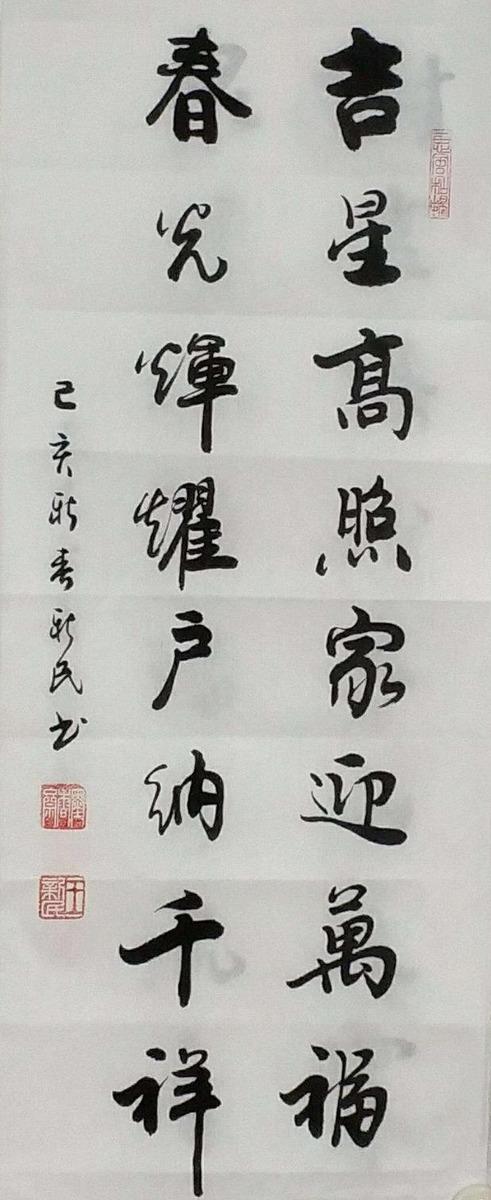 吉星高照家迎萬福
春光輝耀户納千祥
己亥新春新民书
王新民